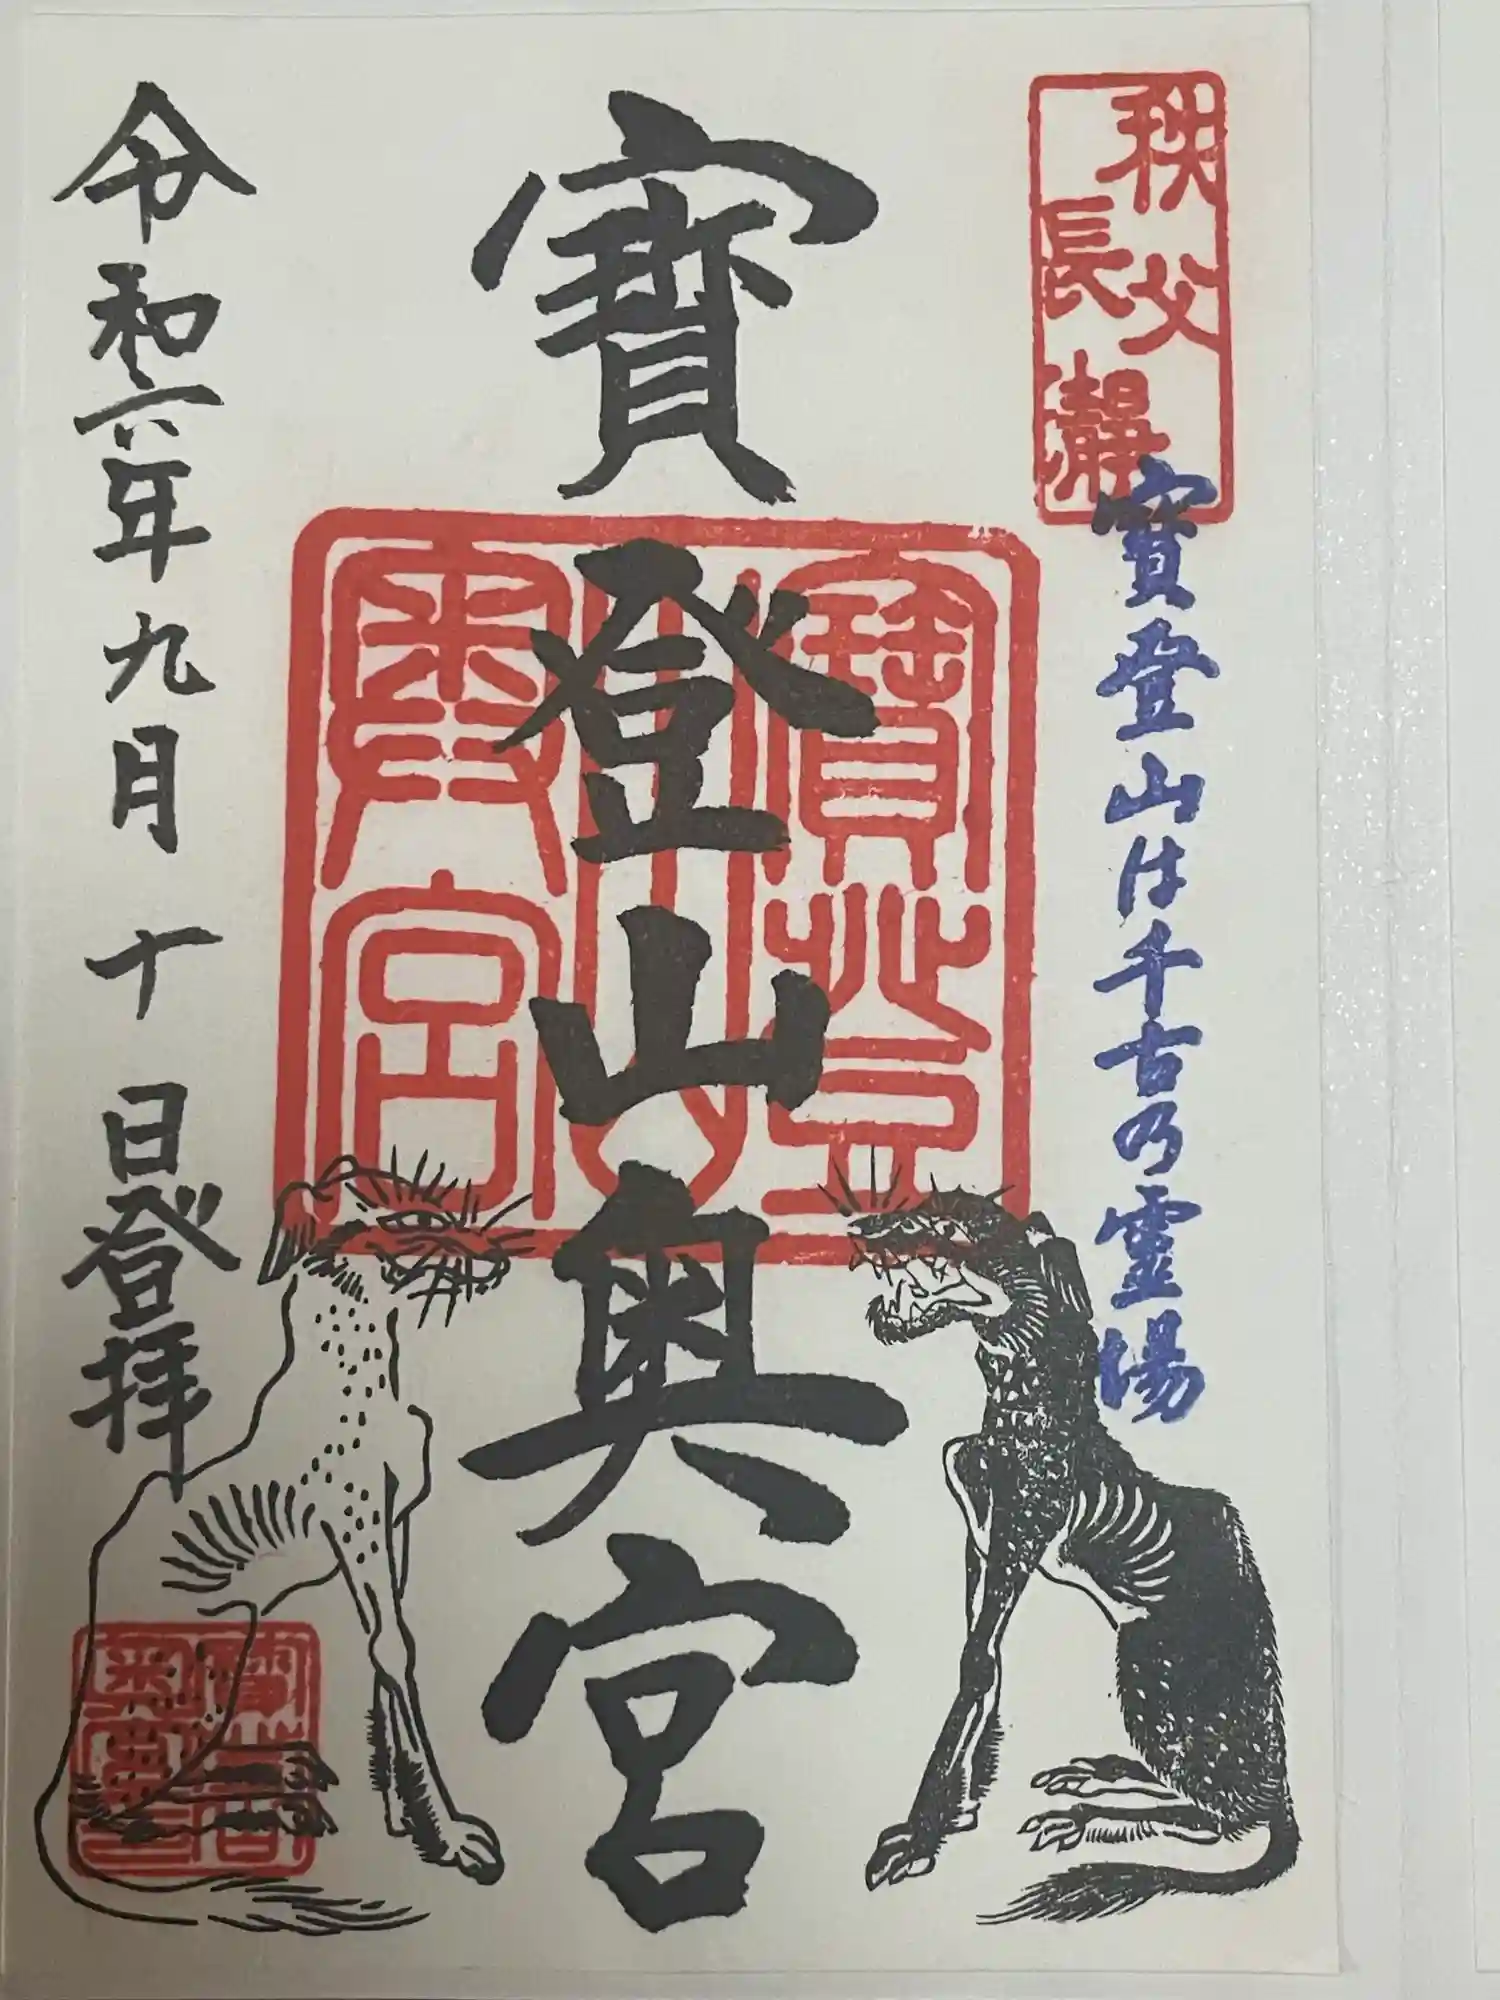 秩父
長瀞
寶登山は千古乃霊場
寶登山奥宮
寶登山奥宮
令和六年九月十日登拝